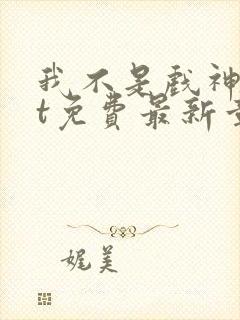 我不是戏神
t免费最新章
娓美